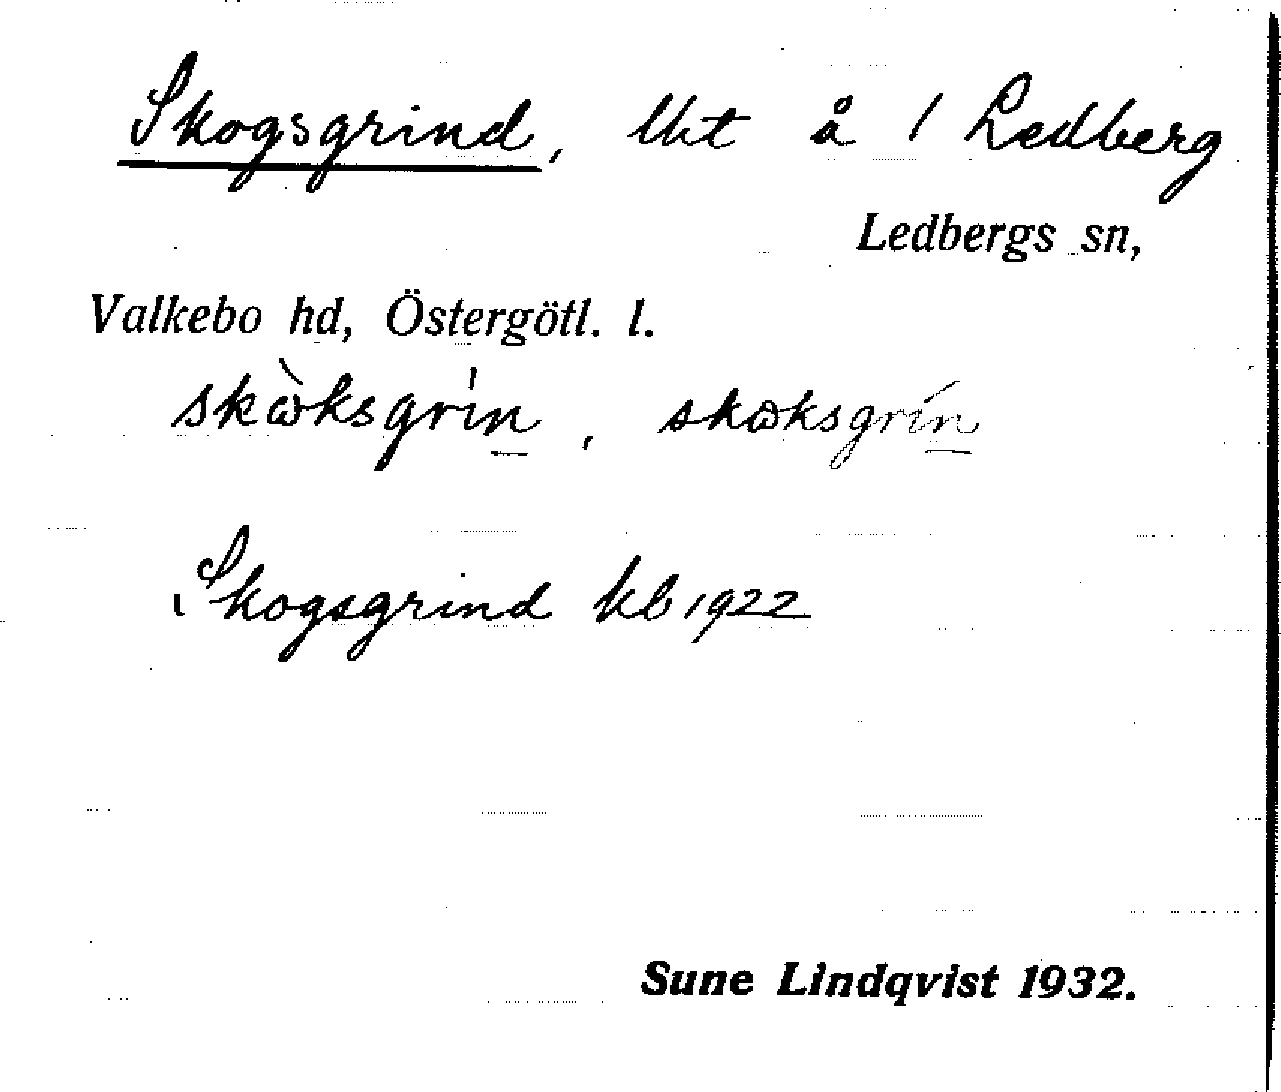 Skogsgrind, lht å 1 Ledberg
Ledbergs sn,
Valkebo hd, Östergötl. l.
skòksgrin, skoksgrín
Skogsgrind kb 1922
Sune Lindqvist 1932.